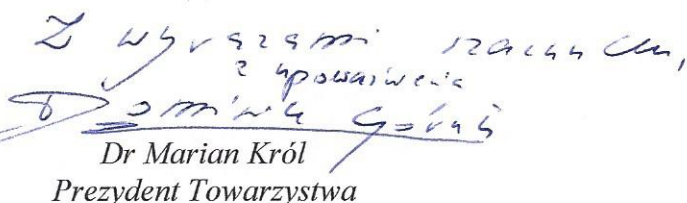 Z wyrazami szacunku,
z upoważnienia
Dominik Górak
Dr Marian Król
Prezydent Towarzystwa